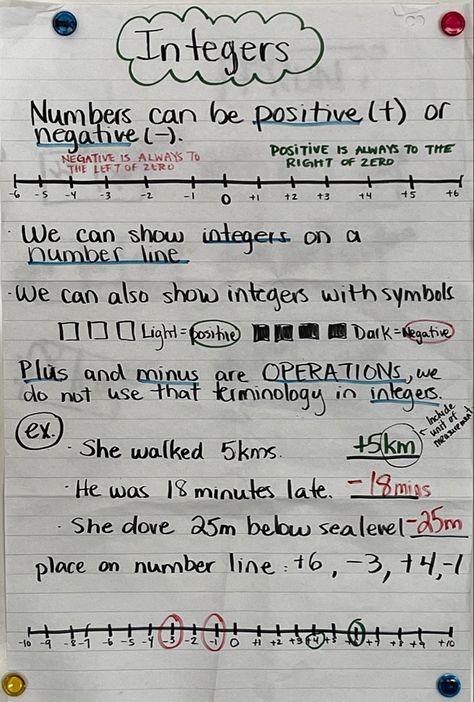 Integers
Numbers can be positive (+) or
negative (-).
NEGATIVE IS ALWAYS TO
THE LEFT OF ZERO
POSITIVE IS ALWAYS TO THE
RIGHT OF ZERO
-6 -5 -4 -3 -2 -1 0 +1 +2 +3 +4 +5 +6
· We can show integers on a
number line
· We can also show integers with symbols
Light = positive Dark = Negative
Plus and minus are OPERATIONS, we
do not use that terminology in integers.
ex.
· She walked 5kms. +5km
include
unit of
measurement
· He was 18 minutes late. -18mins
· She dove 25m below sealevel -25m
place on number line: +6, -3, +4, -1
-10 -9 -8 -7 -6 -5 -4 -3 -2 -1 0 +1 +2 +3 +4 +5 +7 +8 +9 +10